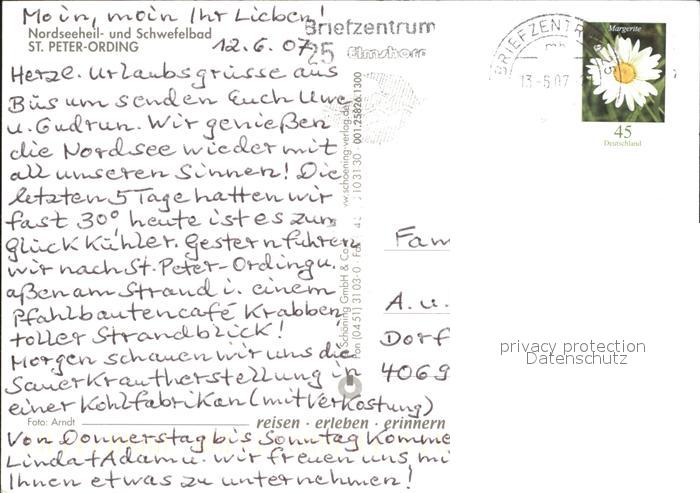 Moin, moin Ihr Lieben!
Nordseeheil- und Schwefelbad
ST. PETER-ORDING
12.6.07
Herzl. Urlaubsgrüsse aus
Büsum senden Euch Uwe
u. Gudrun. Wir genießen
die Nordsee wieder mit
all unseren Sinnen! Die
letzten 5 Tage hatten wir
fast 30°, heute ist es zum
Glück kühler. Gestern fuhren
wir nach St. Peter-Ording u.
aßen am Strand i. einem
Pfahlbautencafé Krabben,
toller Strandblick!
Morgen schauen wir uns die
Sauerkrautherstellung in
einer Kohlfabrik an (mit Verkostung)
Foto: Arndt
reisen · erleben · erinnern
Von Donnerstag bis Sonntag komme
Linda + Adam u. wir freuen uns mi
Ihnen etwas zu unternehmen!
Briefzentrum
25 Elmshorn
BRIEFZENTR
mh
13-6.07
Margerite
45
Deutschland
Schöning GmbH & Co
001.25826.1300
Fam
A. u.
Dorf
4069
privacy protection
Datenschutz